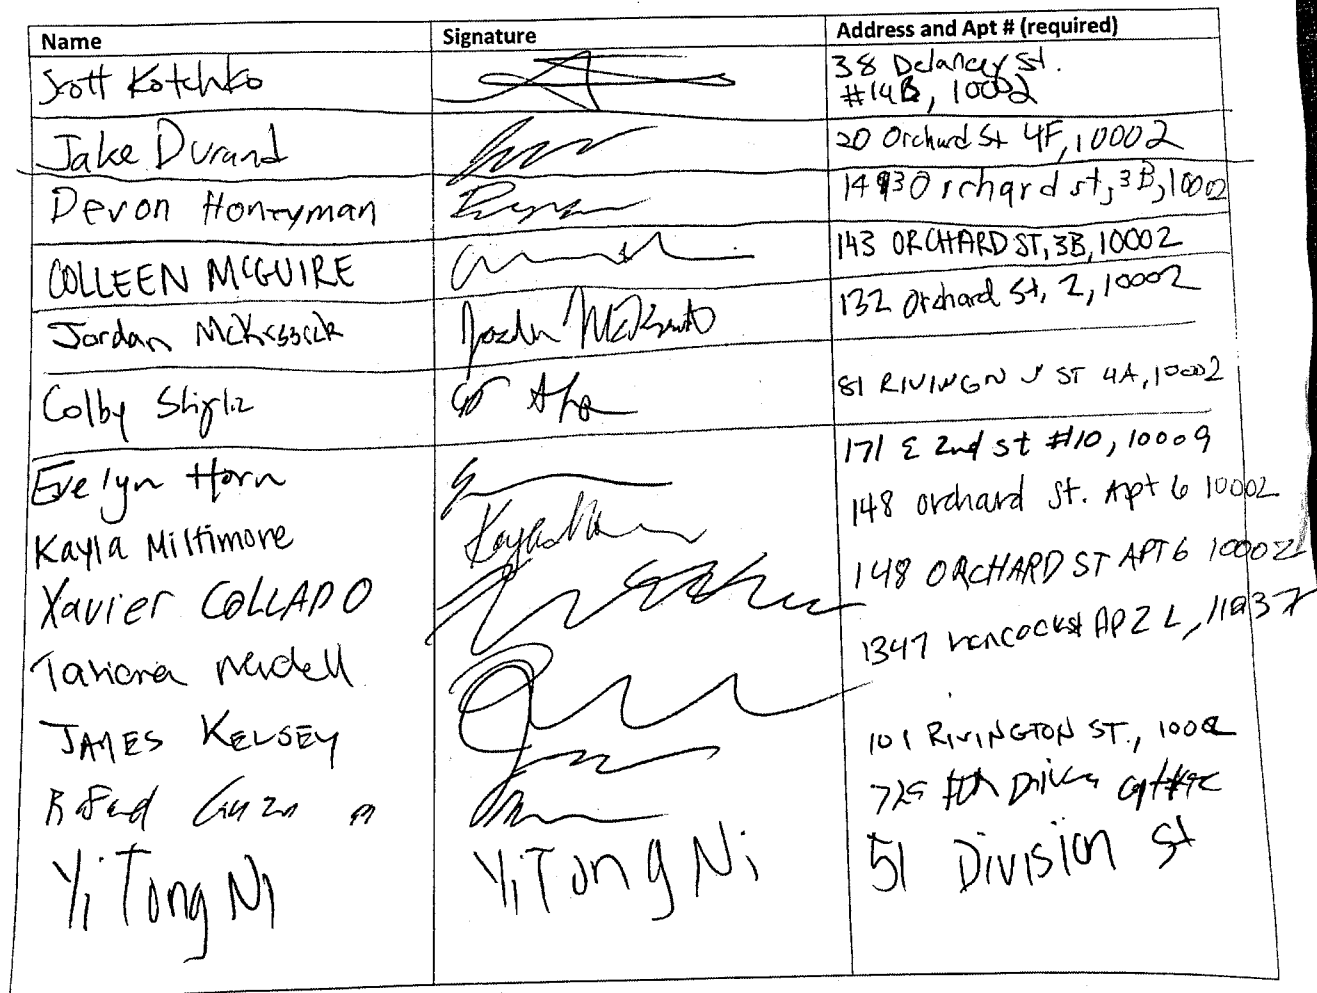 Name Signature Address and Apt # (required)
Scott Kotchko 38 Delancey St.
#14B, 10002
Jake Durand 20 Orchard St 4F, 10002
Devon Honeyman 143 Orchard st, 3B, 10002
COLLEEN McGUIRE 143 ORCHARD ST, 3B, 10002
Jordan McKissick Jordan 132 Orchard St, 2, 10002
Colby 81 RIVINGN ST 4A, 10002
Evelyn Horn 171 E 2nd st #10, 10009
Kayla Miltimore Kayla 148 orchard st. Apt 6 10002
Xavier COLLADO 148 ORCHARD ST APT 6 10002
1347 Hancock st AP 2 L, 11237
JAMES KELSEY 101 RIVINGTON ST., 10002
Drive apt#
Yi Tong Ni Yi Tong Ni 51 Division St